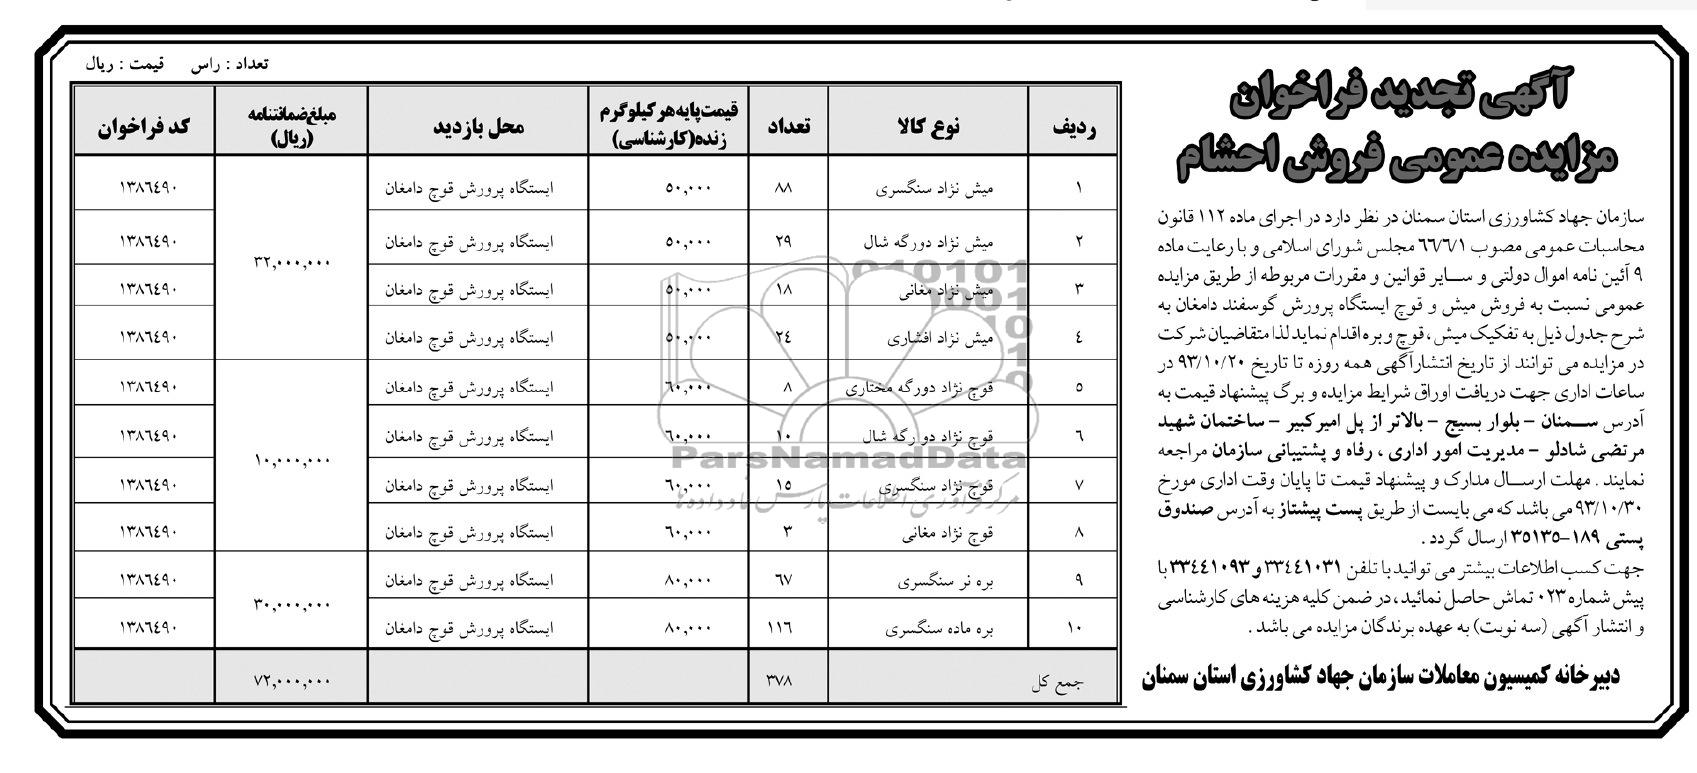 آگهی تجدید فراخوان
مزایده عمومی فروش احشام
سازمان جهاد کشاورزی استان سمنان در نظر دارد در اجرای ماده ۱۱۲ قانون
محاسبات عمومی مصوب ۶۶/۶/۱ مجلس شورای اسلامی و با رعایت ماده
۹ آئین نامه اموال دولتی و سـایر قوانین و مقررات مربوطه از طریق مزایده
عمومی نسبت به فروش میش و قوچ ایستگاه پرورش گوسفند دامغان به
شرح جدول ذیل به تفکیک میش ، قوچ و بره اقدام نماید لذا متقاضیان شرکت
در مزایده می توانند از تاریخ انتشارآگهی همه روزه تا تاریخ ۹۳/۱۰/۲۰ در
ساعات اداری جهت دریافت اوراق شرایط مزایده و برگ پیشنهاد قیمت به
آدرس سـمنان - بلوار بسیج - بالاتر از پل امیرکبیر - ساختمان شهید
مرتضی شادلو - مدیریت امور اداری ، رفاه و پشتیبانی سازمان مراجعه
نمایند . مهلت ارسـال مدارک و پیشنهاد قیمت تا پایان وقت اداری مورخ
۹۳/۱۰/۳۰ می باشد که می بایست از طریق پست پیشتاز به آدرس صندوق
پستی ۱۸۹-۳۵۱۳۵ ارسال گردد .
جهت کسب اطلاعات بیشتر می توانید با تلفن ۳۳۴٤۱۰۳۱ و ۳۳۴٤۱۰۹۳ با
پیش شماره ۰۲۳ تماس حاصل نمائید ، در ضمن کلیه هزینه های کارشناسی
و انتشار آگهی (سه نوبت) به عهده برندگان مزایده می باشد .
دبیرخانه کمیسیون معاملات سازمان جهاد کشاورزی استان سمنان
تعداد : راس قیمت : ریال
ردیف نوع کالا تعداد قیمت پایه هر کیلوگرم زنده(کارشناسی) محل بازدید مبلغ ضمانتنامه (ریال) کد فراخوان
۱ میش نژاد سنگسری ۸۸ ۵۰,۰۰۰ ایستگاه پرورش قوچ دامغان ۱۳۸٦٤۹۰
۲ میش نژاد دورگه شال ۲۹ ۵۰,۰۰۰ ایستگاه پرورش قوچ دامغان ۳۲,۰۰۰,۰۰۰ ۱۳۸٦٤۹۰
۳ میش نژاد مغانی ۱۸ ۵۰,۰۰۰ ایستگاه پرورش قوچ دامغان ۱۳۸٦٤۹۰
٤ میش نژاد افشاری ۲٤ ۵۰,۰۰۰ ایستگاه پرورش قوچ دامغان ۱۳۸٦٤۹۰
۵ قوچ نژاد دورگه مختاری ۸ ٦۰,۰۰۰ ایستگاه پرورش قوچ دامغان ۱۳۸٦٤۹۰
٦ قوچ نژاد دورگه شال ۱۰ ٦۰,۰۰۰ ایستگاه پرورش قوچ دامغان ۱۰,۰۰۰,۰۰۰ ۱۳۸٦٤۹۰
۷ قوچ نژاد سنگسری ۱۵ ٦۰,۰۰۰ ایستگاه پرورش قوچ دامغان ۱۳۸٦٤۹۰
۸ قوچ نژاد مغانی ۳ ٦۰,۰۰۰ ایستگاه پرورش قوچ دامغان ۱۳۸٦٤۹۰
۹ بره نر سنگسری ٦۷ ۸۰,۰۰۰ ایستگاه پرورش قوچ دامغان ۳۰,۰۰۰,۰۰۰ ۱۳۸٦٤۹۰
۱۰ بره ماده سنگسری ۱۱٦ ۸۰,۰۰۰ ایستگاه پرورش قوچ دامغان ۱۳۸٦٤۹۰
جمع کل ۳۷۸ ۷۲,۰۰۰,۰۰۰
ParsNamadData
مرکز فرآوری اطلاعات پارس نماد داده ها